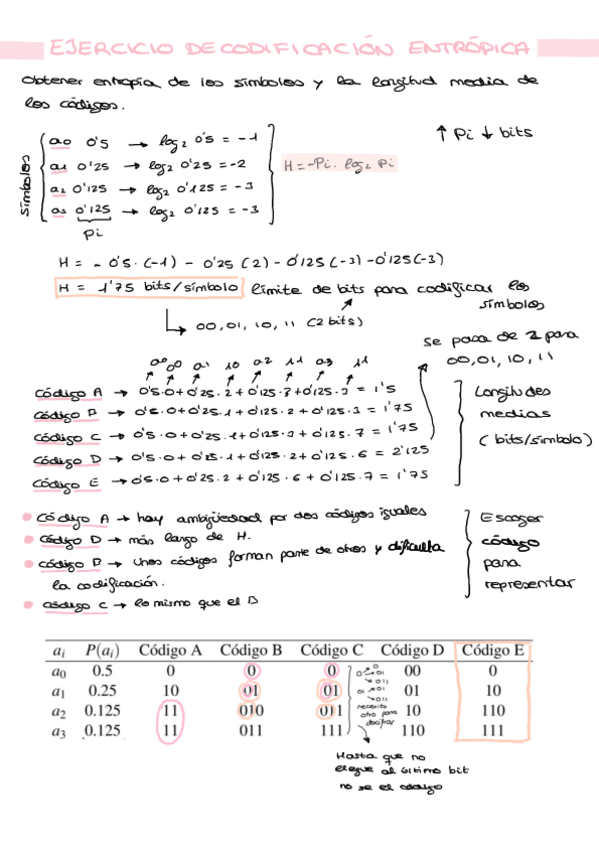 EJERCICIO DE CODIFICACIÓN ENTRÓPICA
Obtener entropía de los símbolos y la longitud media de
los códigos.
Símbolos
a0 0'5 → log2 0'5 = -1
a1 0'25 → log2 0'25 = -2
a2 0'125 → log2 0'125 = -3
a3 0'125 → log2 0'125 = -3
Pi
H = -Pi · log2 Pi
↑ Pi ↓ bits
H = - 0'5 · (-1) - 0'25 (2) - 0'125 (-3) - 0'125 (-3)
H = 1'75 bits/símbolo límite de bits para codificar los
símbolos
00, 01, 10, 11 (2 bits)
se pasa de 2 para
00, 01, 10, 11
a0 00 a1 10 a2 11 a3 11
Código A → 0'5·0 + 0'25·2 + 0'125·3 + 0'125·3 = 1'5
Código B → 0'5·0 + 0'25·1 + 0'125·2 + 0'125·3 = 1'75
Código C → 0'5·0 + 0'25·1 + 0'125·3 + 0'125·7 = 1'75
Código D → 0'5·0 + 0'25·1 + 0'125·2 + 0'125·6 = 2'125
Código E → 0'5·0 + 0'25·2 + 0'125·6 + 0'125·7 = 1'75
Longitudes
medias
(bits/símbolo)
Código A → hay ambigüedad por dos códigos iguales
Código D → más largo de H.
Código B → Unos códigos forman parte de otros y dificulta
la codificación.
Código C → lo mismo que el B
Escoger
código
para
representar
ai P(ai) Código A Código B Código C Código D Código E
a0 0.5 0 0 0 00 0
a1 0.25 10 01 01 01 10
a2 0.125 11 010 011 10 110
a3 0.125 11 011 111 110 111
necesito
otro para
Hasta que no
llegue al último bit
no se el código